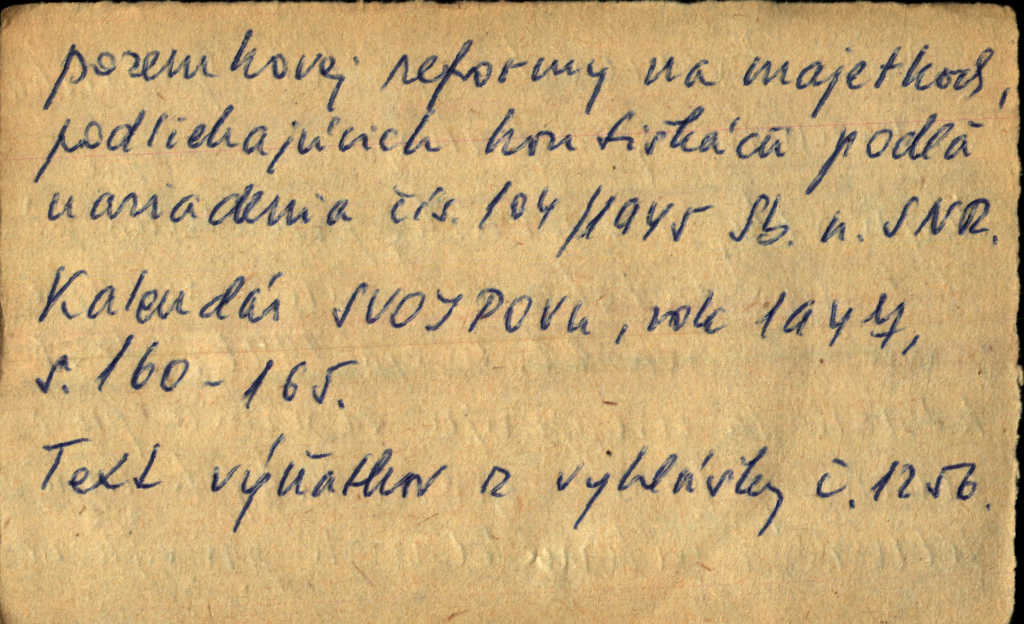 pozemkovej reformy na majetkoch,
podliehajúcich konfiškácii podľa
nariadenia čís. 104/1945 Sb. n. SNR.
Kalendár SVOJPOVu, rok 1947,
s. 160-165.
Text výňatkov z vyhlášky č. 1256.